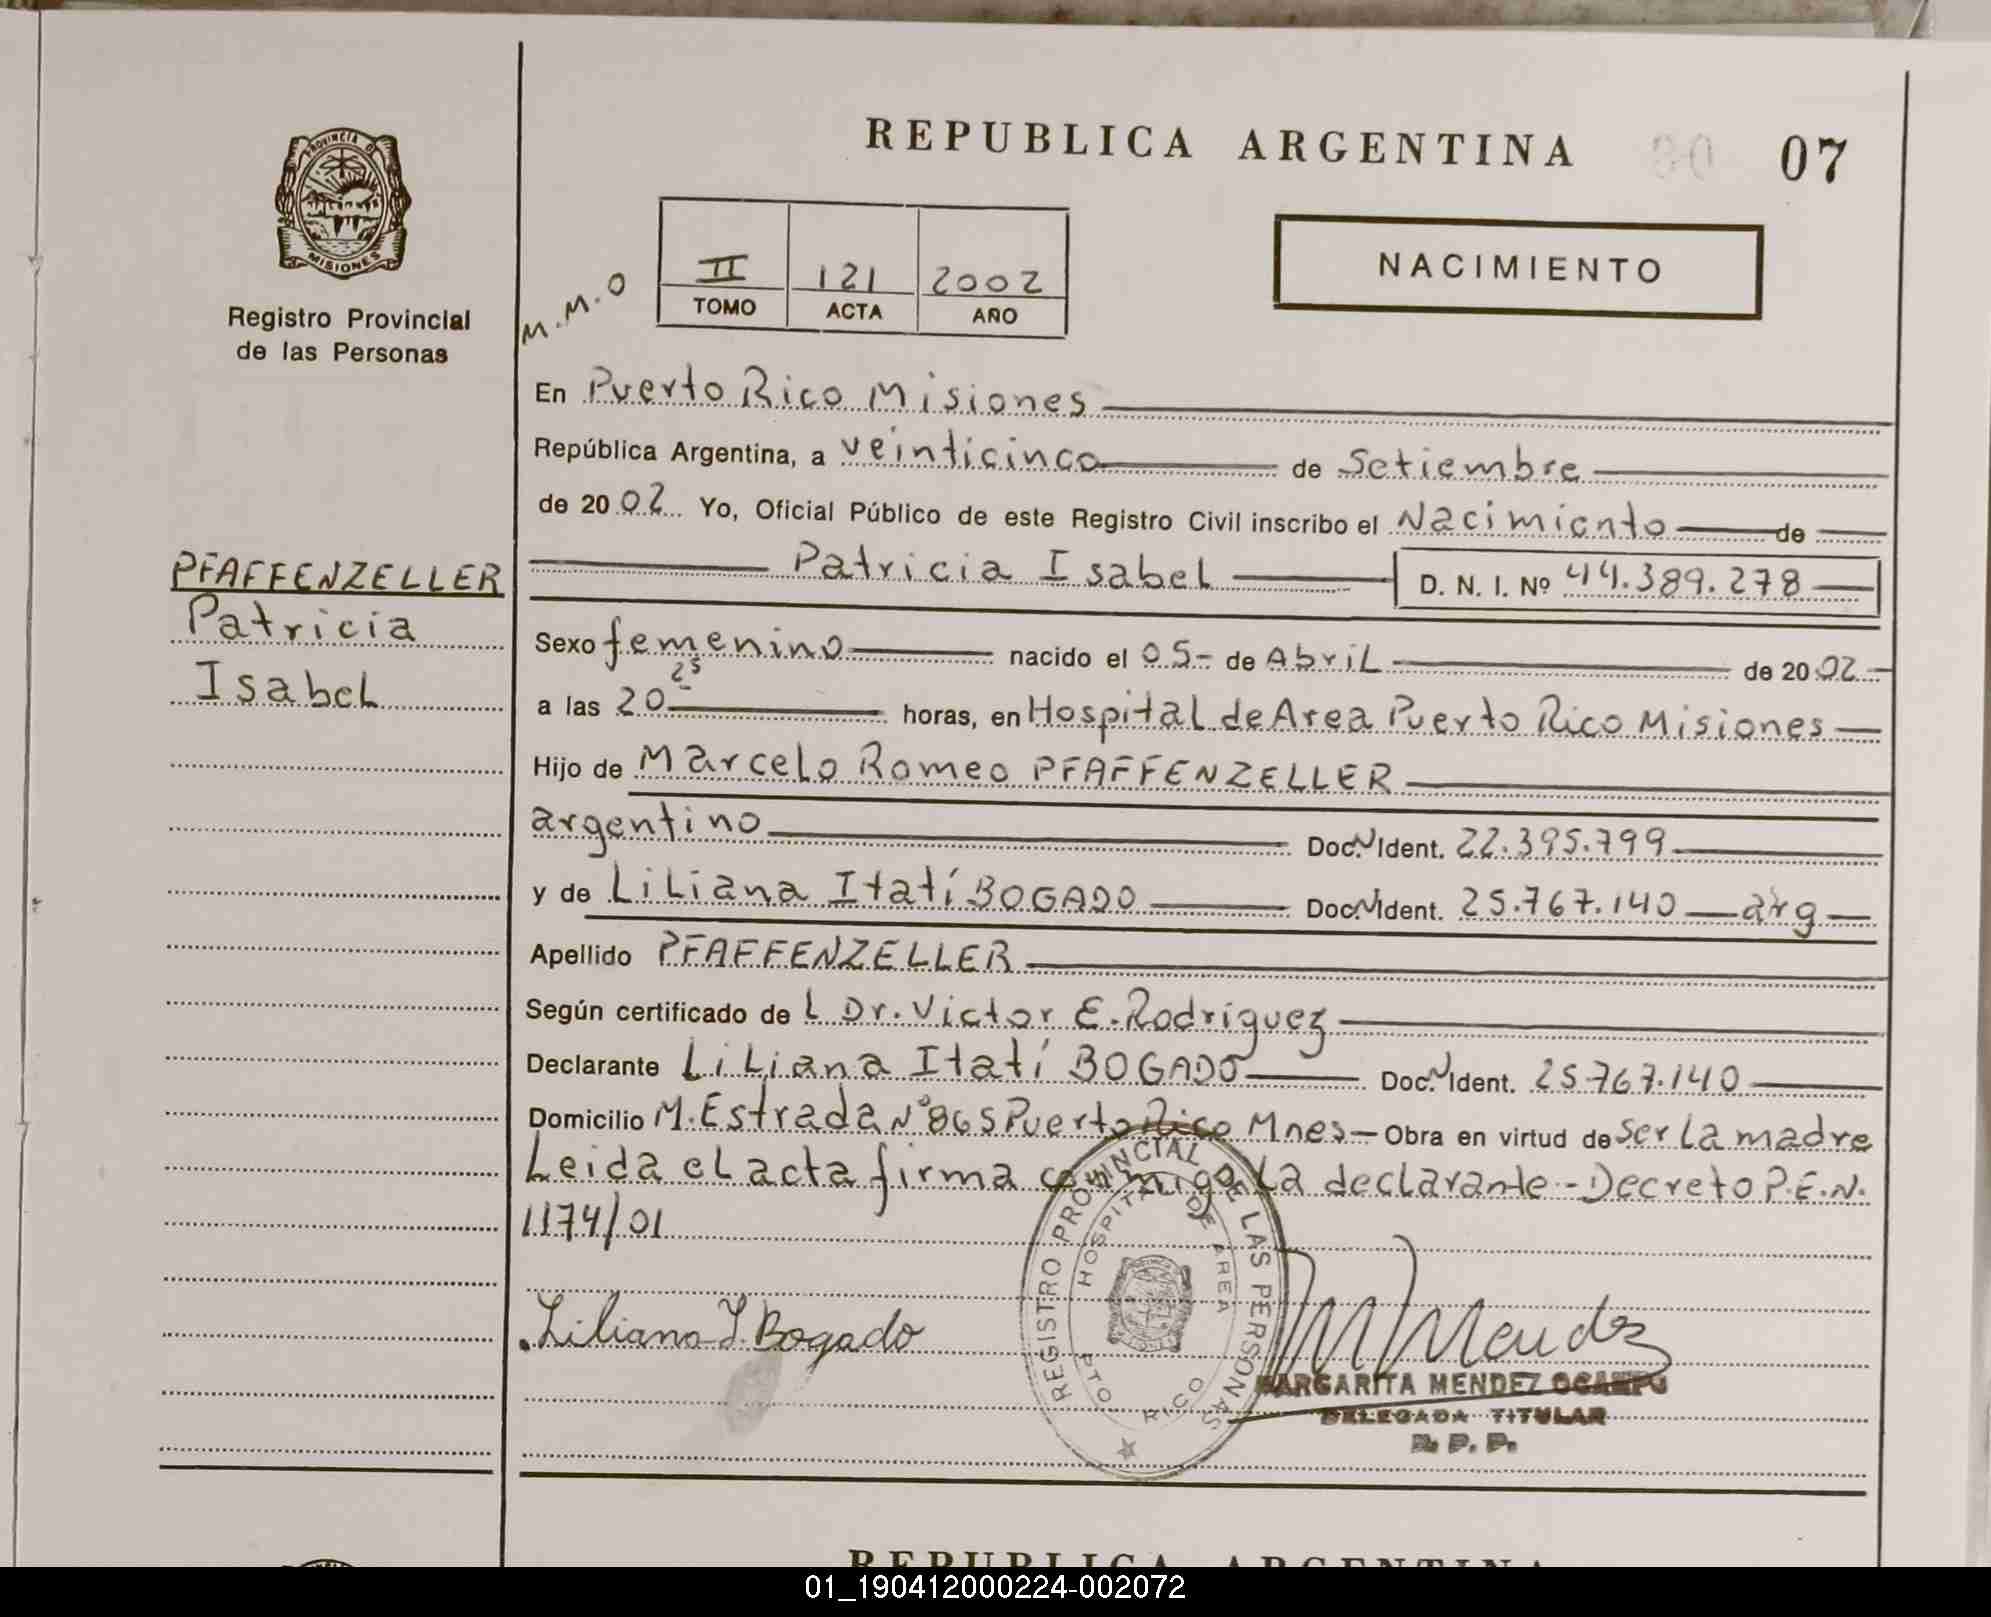 REPUBLICA ARGENTINA 07
PROVINCIA DE
MISIONES
Registro Provincial
de las Personas
M.M.O
II 121 2002
TOMO ACTA AÑO
NACIMIENTO
En Puerto Rico Misiones
República Argentina, a veinticinco de Setiembre
de 2002 Yo, Oficial Público de este Registro Civil inscribo el Nacimiento de
Patricia Isabel D. N. I. Nº 44.389.278
PFAFFENZELLER
Patricia
Isabel
Sexo femenino nacido el 05- de Abril de 2002
a las 20 25 horas, en Hospital de Area Puerto Rico Misiones
Hijo de Marcelo Romeo PFAFFENZELLER
argentino Doc. N Ident. 22.395.799
y de Liliana Itatí BOGADO Doc. N Ident. 25.767.140 arg
Apellido PFAFFENZELLER
Según certificado de L Dr. Victor E. Rodriguez
Declarante Liliana Itatí BOGADO Doc. N Ident. 25.767.140
Domicilio M. Estrada Nº 865 Puerto Rico Mnes - Obra en virtud de ser la madre
Leida el acta firma conmigo la declarante - Decreto P.E.N.
1174/01
Liliana I. Bogado
REGISTRO PROVINCIAL DE LAS PERSONAS
HOSPITAL DE AREA
PTO RICO
M Mendez
MARGARITA MENDEZ OCAMPO
DELEGADA TITULAR
R. P. P.
REPUBLICA ARGENTINA
01_190412000224-002072